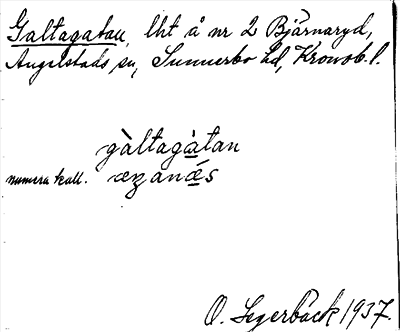 Galtagatan, lht å nr 2 Bjärnaryd,
Angelstads sn, Sunnerbo hd, Kronob. l.
gàltagàtan
numera kall. æzanǽs
O. Segerbäck 1937.